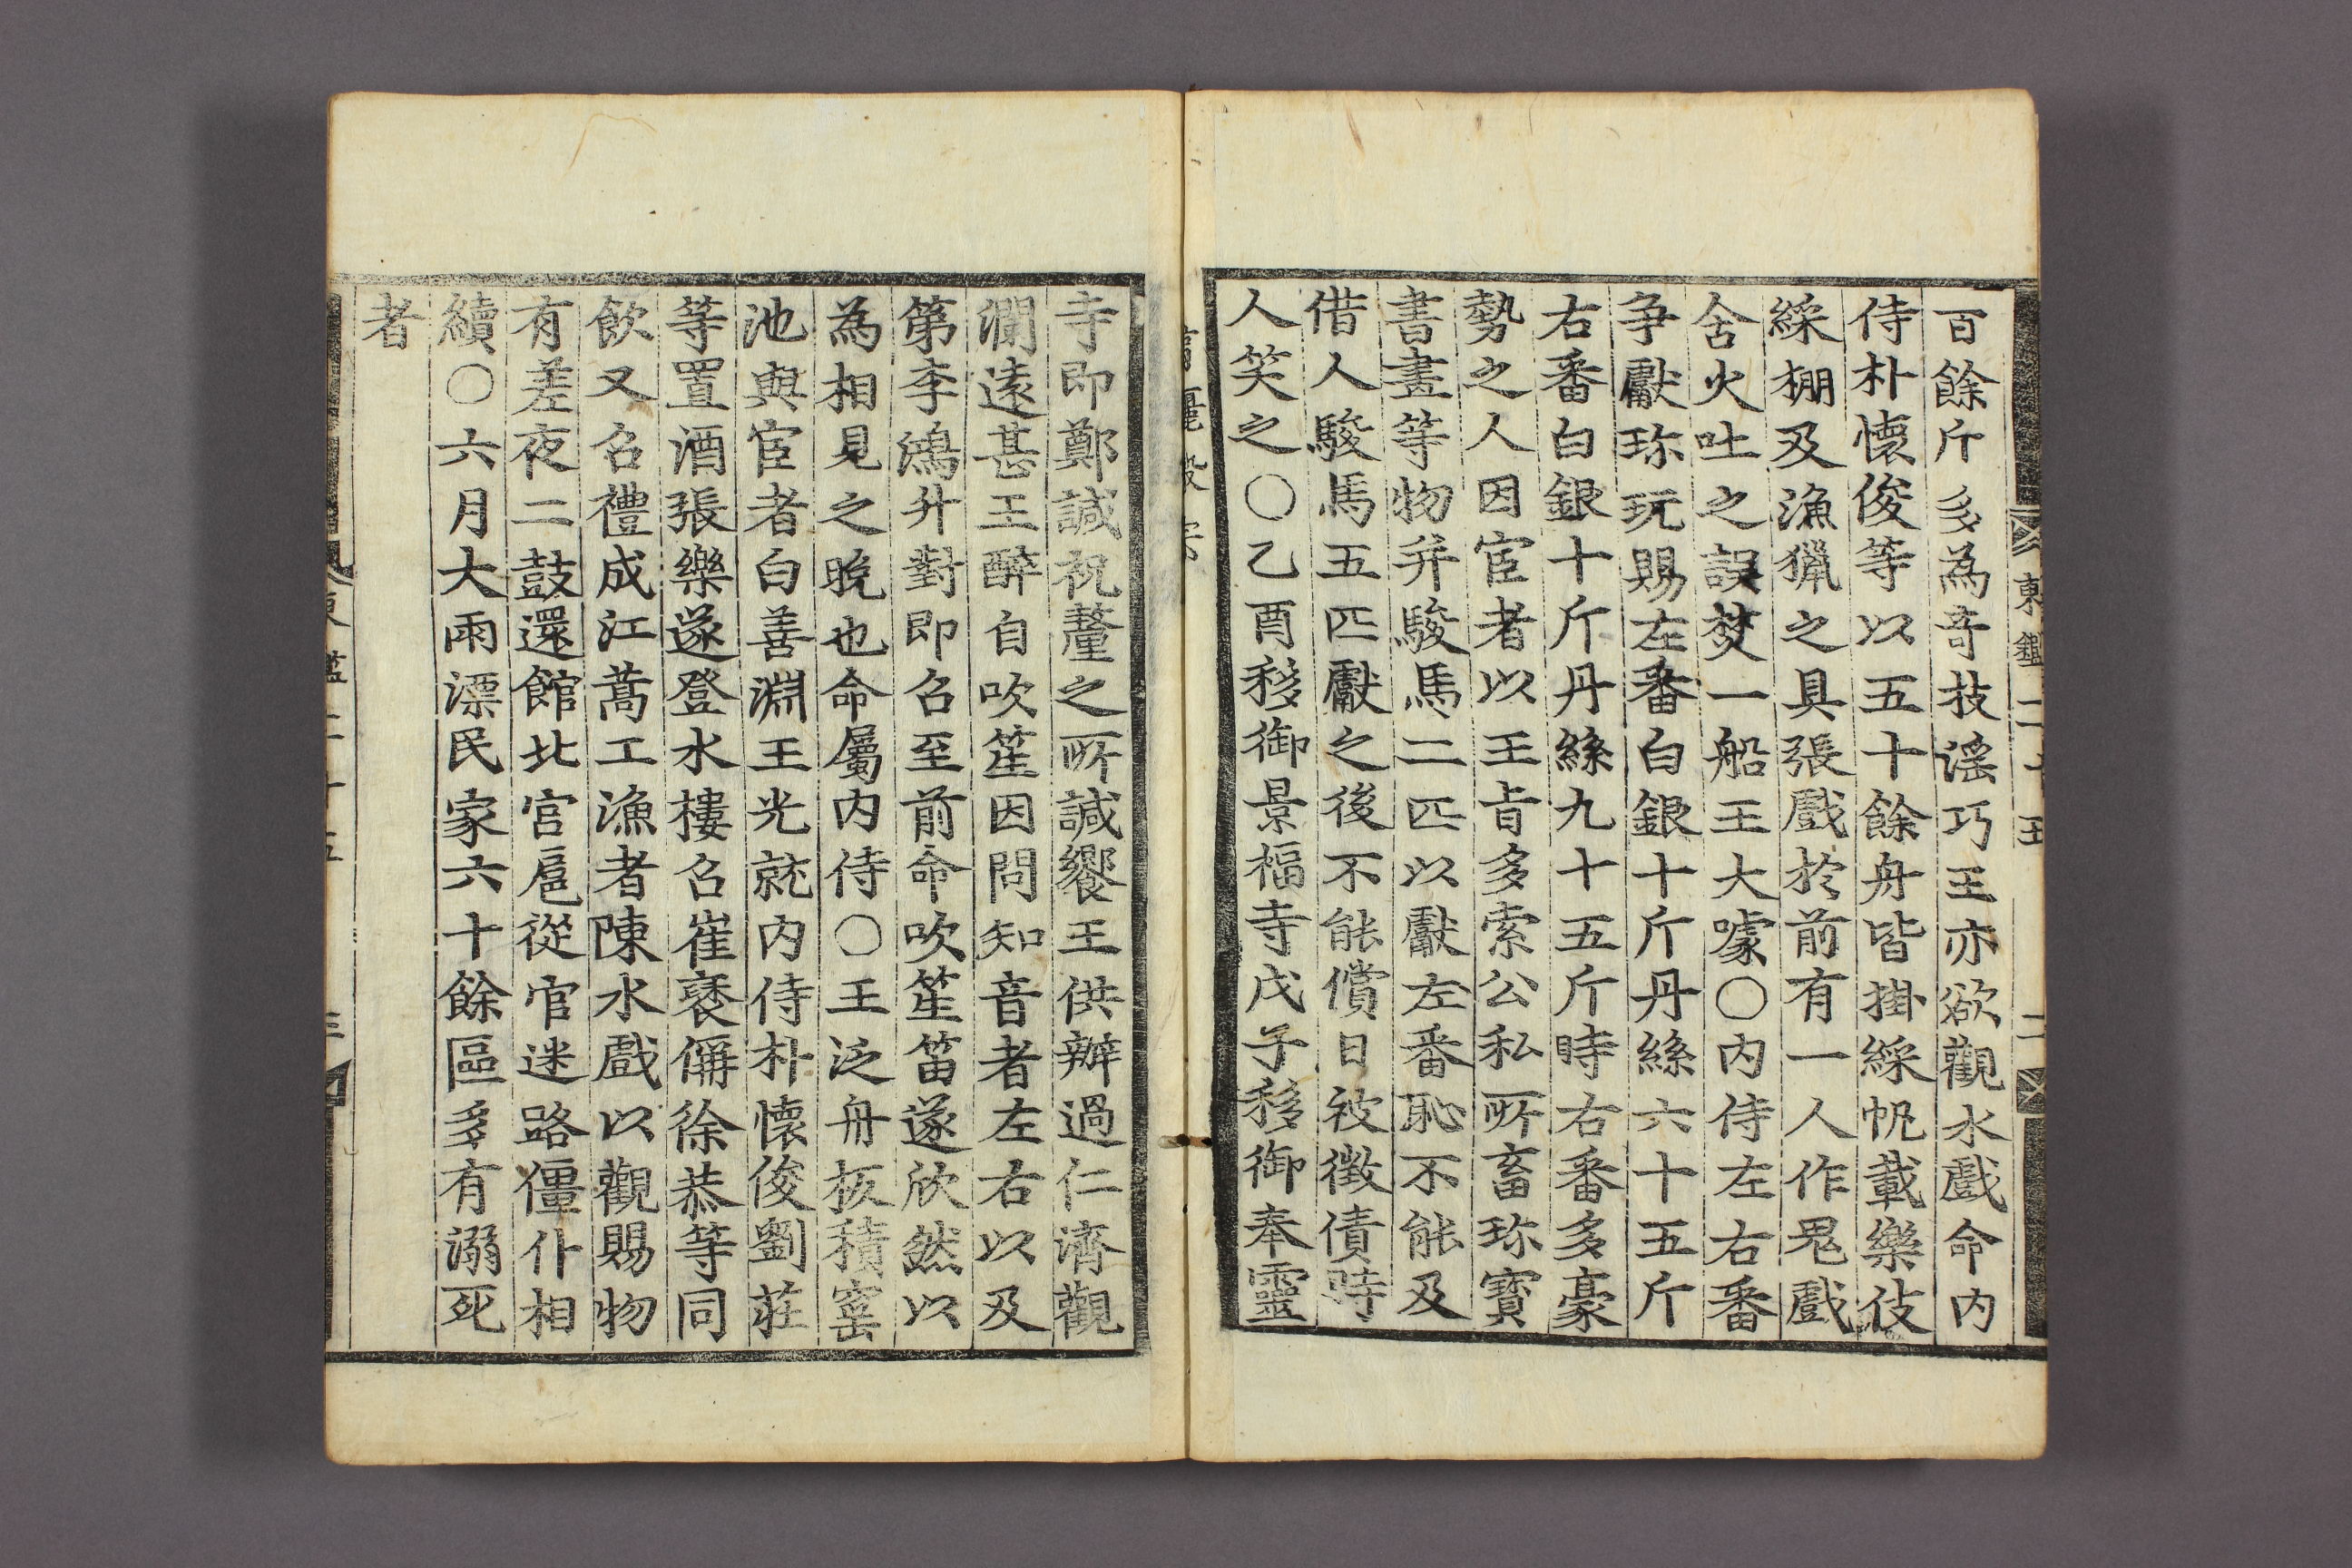 東鑑二十五 二
百餘斤多為奇技滛巧王亦欲觀水戲命内
侍朴懷俊等以五十餘舟皆掛綵帆載樂伎
綵棚及漁獵之具張戲於前有一人作鬼戲
含火吐之誤焚一船王大噱〇内侍左右番
争獻珎玩賜左番白銀十斤丹絲六十五斤
右番白銀十斤丹絲九十五斤時右番多豪
勢之人因宦者以王旨多索公私所畜珎寳
書畫等物并駿馬二匹以獻左番恥不能及
借人駿馬五匹獻之後不能償日被徵債時
人笑之〇乙酉移御景福寺戊子移御奉靈
寺即鄭諴祝釐之所諴饗王供辦過仁濟觀
瀾遠甚王醉自吹笙因問知音者左右以及
第李鴻升對即召至前命吹笙笛遂欣然以
為相見之晩也命屬内侍〇王泛舟板積窰
池與宦者白善淵王光就内侍朴懷俊劉莊
等置酒張樂遂登水樓召崔褎偁徐恭等同
飲又召禮成江蒿工漁者陳水戲以觀賜物
有差夜二鼓還館北宮扈從官迷路僵仆相
續〇六月大雨漂民家六十餘區多有溺死
者